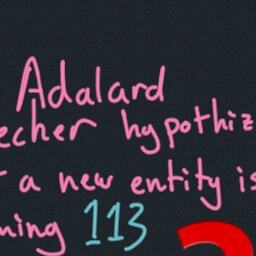 Adalard
echer hypothiz
t a new entity is
ning 113